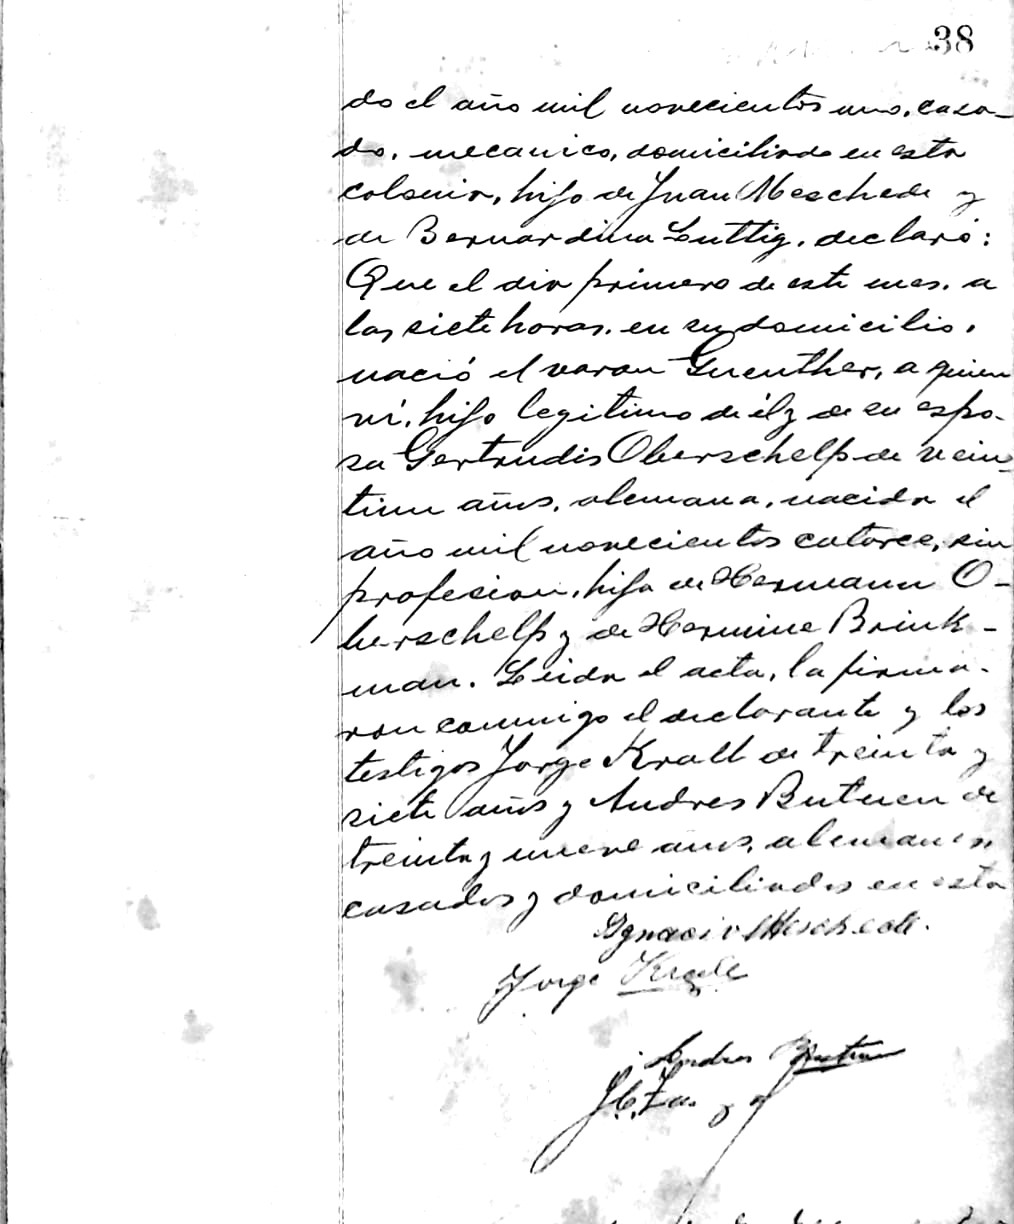 38
do el año mil novecientos uno, casa-
do, mecanico, domiciliado en esta
colonia, hijo de Juan Meschede y
de Bernardina Luttig, declaró:
Que el dia primero de este mes, a
las siete horas, en su domicilio,
nació el varon Guenther, a quien
ví, hijo legitimo de él y de su espo-
sa Gertrudis Oberschelp de vein-
tiun años, alemana, nacida el
año mil novecientos catorce, sin
profesion, hija de Hermann O-
berschelp y de Hermine Brink-
man. Leida el acta, la firma-
ron conmigo el declarante y los
testigos Jorge Krall de treinta y
siete años y Andres Butuen de
treinta y nueve años, alemanes,
casados y domiciliados en esta
Ignacio Meschede.
Jorge Kralle
Andres